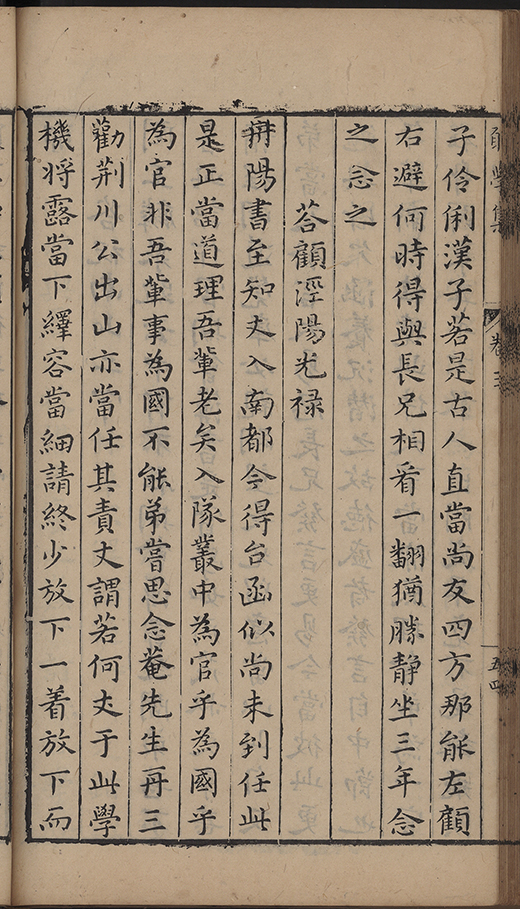 學集
卷三
五四
子伶俐漢子若是古人直當尚友四方那能左顧
右避何時得與長兄相看一翻猶勝静坐三年念
之念之
荅顧涇陽光禄
冄陽書至知丈入南都今得台函似尚未到任此
是正當道理吾軰老矣入隊叢中為官乎為國乎
為官非吾軰事為國不能弟嘗思念菴先生再三
勸荆川公出山亦當任其責丈謂若何丈于此學
機将露當下繹容當細請終少放下一着放下而